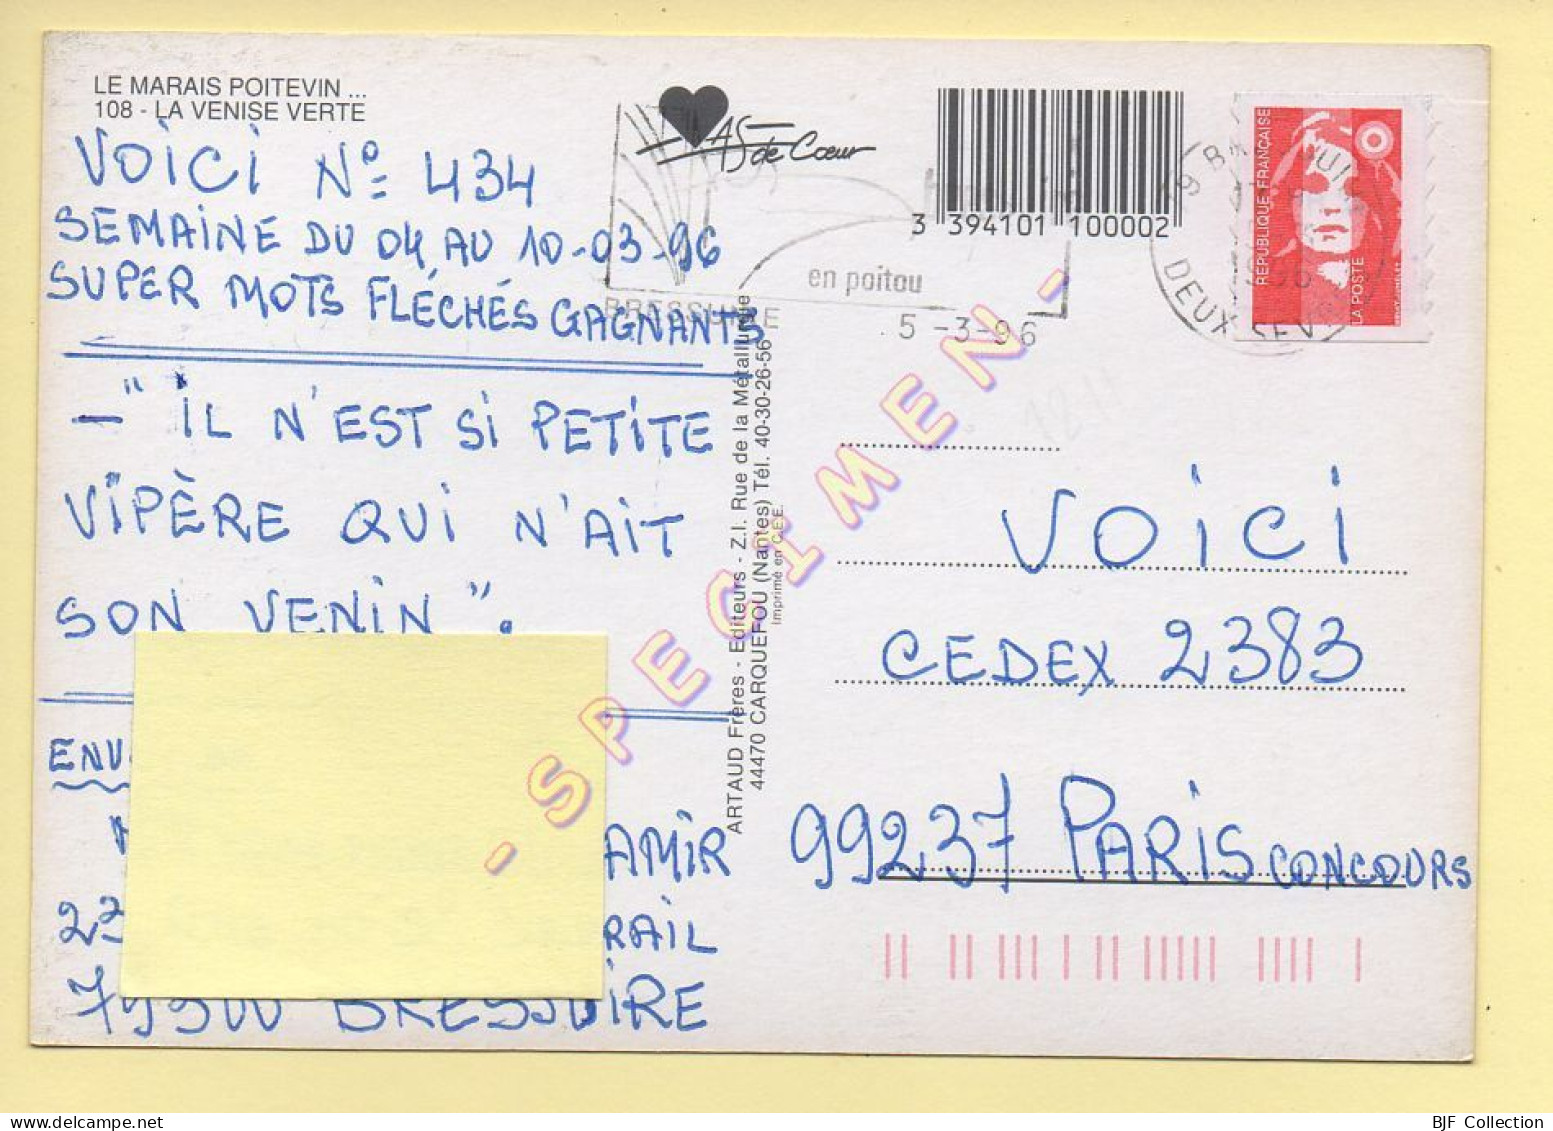 LE MARAIS POITEVIN ...
108 - LA VENISE VERTE
VOICI N° 434
SEMAINE DU 04 AU 10-03-96
SUPER MOTS FLÉCHÉS GAGNANTS
- "IL N'EST SI PETITE
VIPÈRE QUI N'AIT
SON VENIN".
AMIR
RAIL
79300 BRESSUIRE
AS de Cœur
3 394101 100002
en poitou
BRESSUIRE
5 -3-96
DEUX SEVRES
RÉPUBLIQUE FRANÇAISE
LA POSTE
ARTAUD Frères - Editeurs - Z.I. Rue de la Métallurgie
44470 CARQUEFOU (Nantes) Tél. 40-30-26-56
Imprimé en C.E.E.
- SPECIMEN -
VOICI
CEDEX 2383
99237 PARIS CONCOURS
BJF Collection